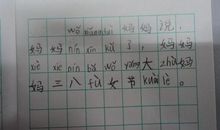 wǒ 妈妈 说,
妈妈 nín xīn kǔ 了, 妈妈
xiè xie nín bǎ wǒ yǎng 大 zhù 妈
妈 三 八 fù 女 节 kuài lè 。